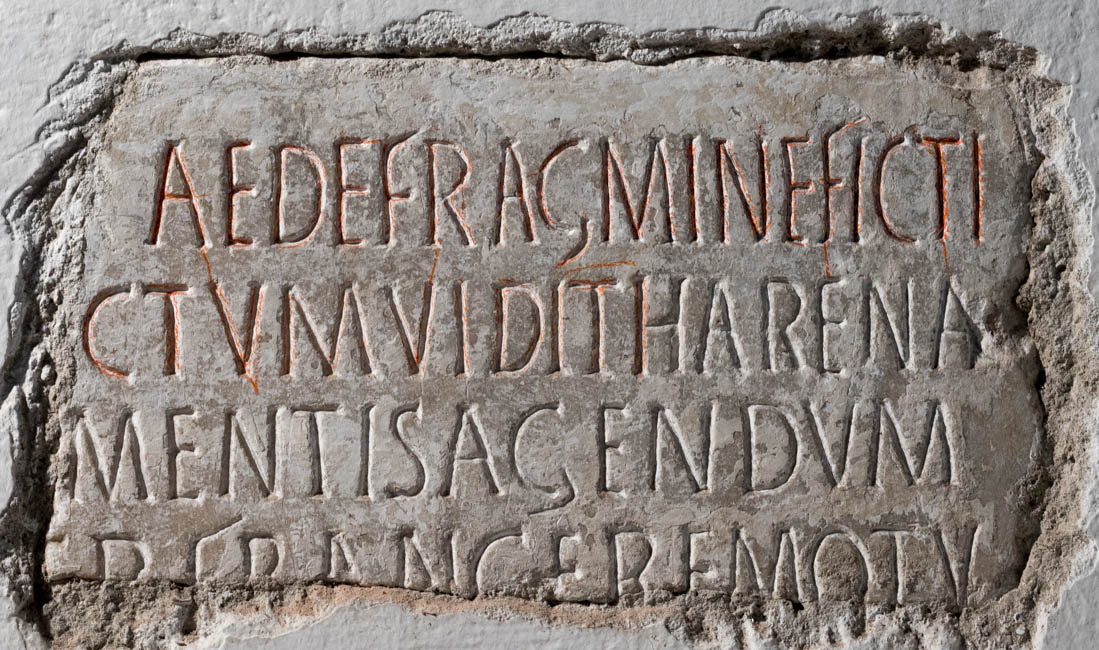 AEDEFRAGMINEFICTI
CTVMVIDITHARENA
MENTISAGENDVM
FRANGEREMOTV